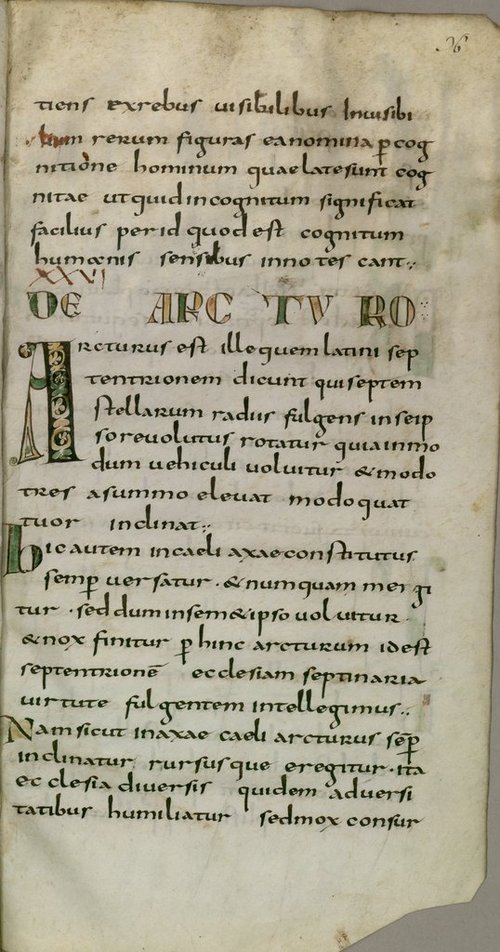 26
tiens exrebus uisibilibus Inuisibi
lium rerum figuras ea nomina p̱ cog
nitione hominum quae latesunt cog
nitae ut quid incognitum significat
facilius per id quod est cognitum
humanis sensibus innotescant:,
XXVI
DE ARCTURO
Arcturus est ille quem latini sep
tentrionem dicunt qui septem
stellarum radiis fulgens in seip
so reuolutus rotatur quia inmo
dum uehiculi uoluitur & modo
tres a summo eleuat modo quat
tuor inclinat:,
hic autem in caeli axae constitutus
semp̱ uersatur · & numquam mergi
tur · sed dum in sem&ipso uoluitur ·
& nox finitur p̱ hinc arcturum id est
septentrionē ecclesiam septinaria
uirtute fulgentem intellegimus:,
Nam sicut in axae caeli arcturus sep̱
inclinatur rursusque eregitur · ita
ecclesia diuersis quidem aduersi
tatibus humiliatur sed mox consur